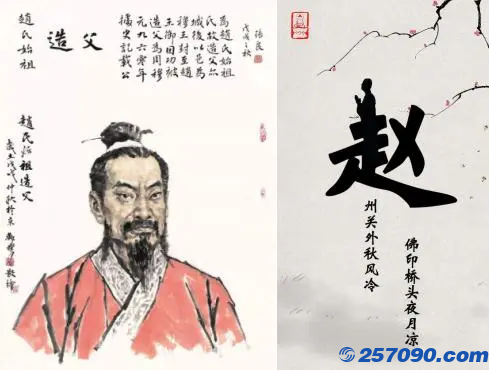 趙氏始祖
造父
據史記載公
元九六零年
造父為周穆
王御因功被
穆王封至趙
城後以邑為
氏故造父尔
為趙氏始祖
戊戌之秋
趙氏始祖造父
赵
州关外秋风冷
佛印桥头夜月凉
257090.com